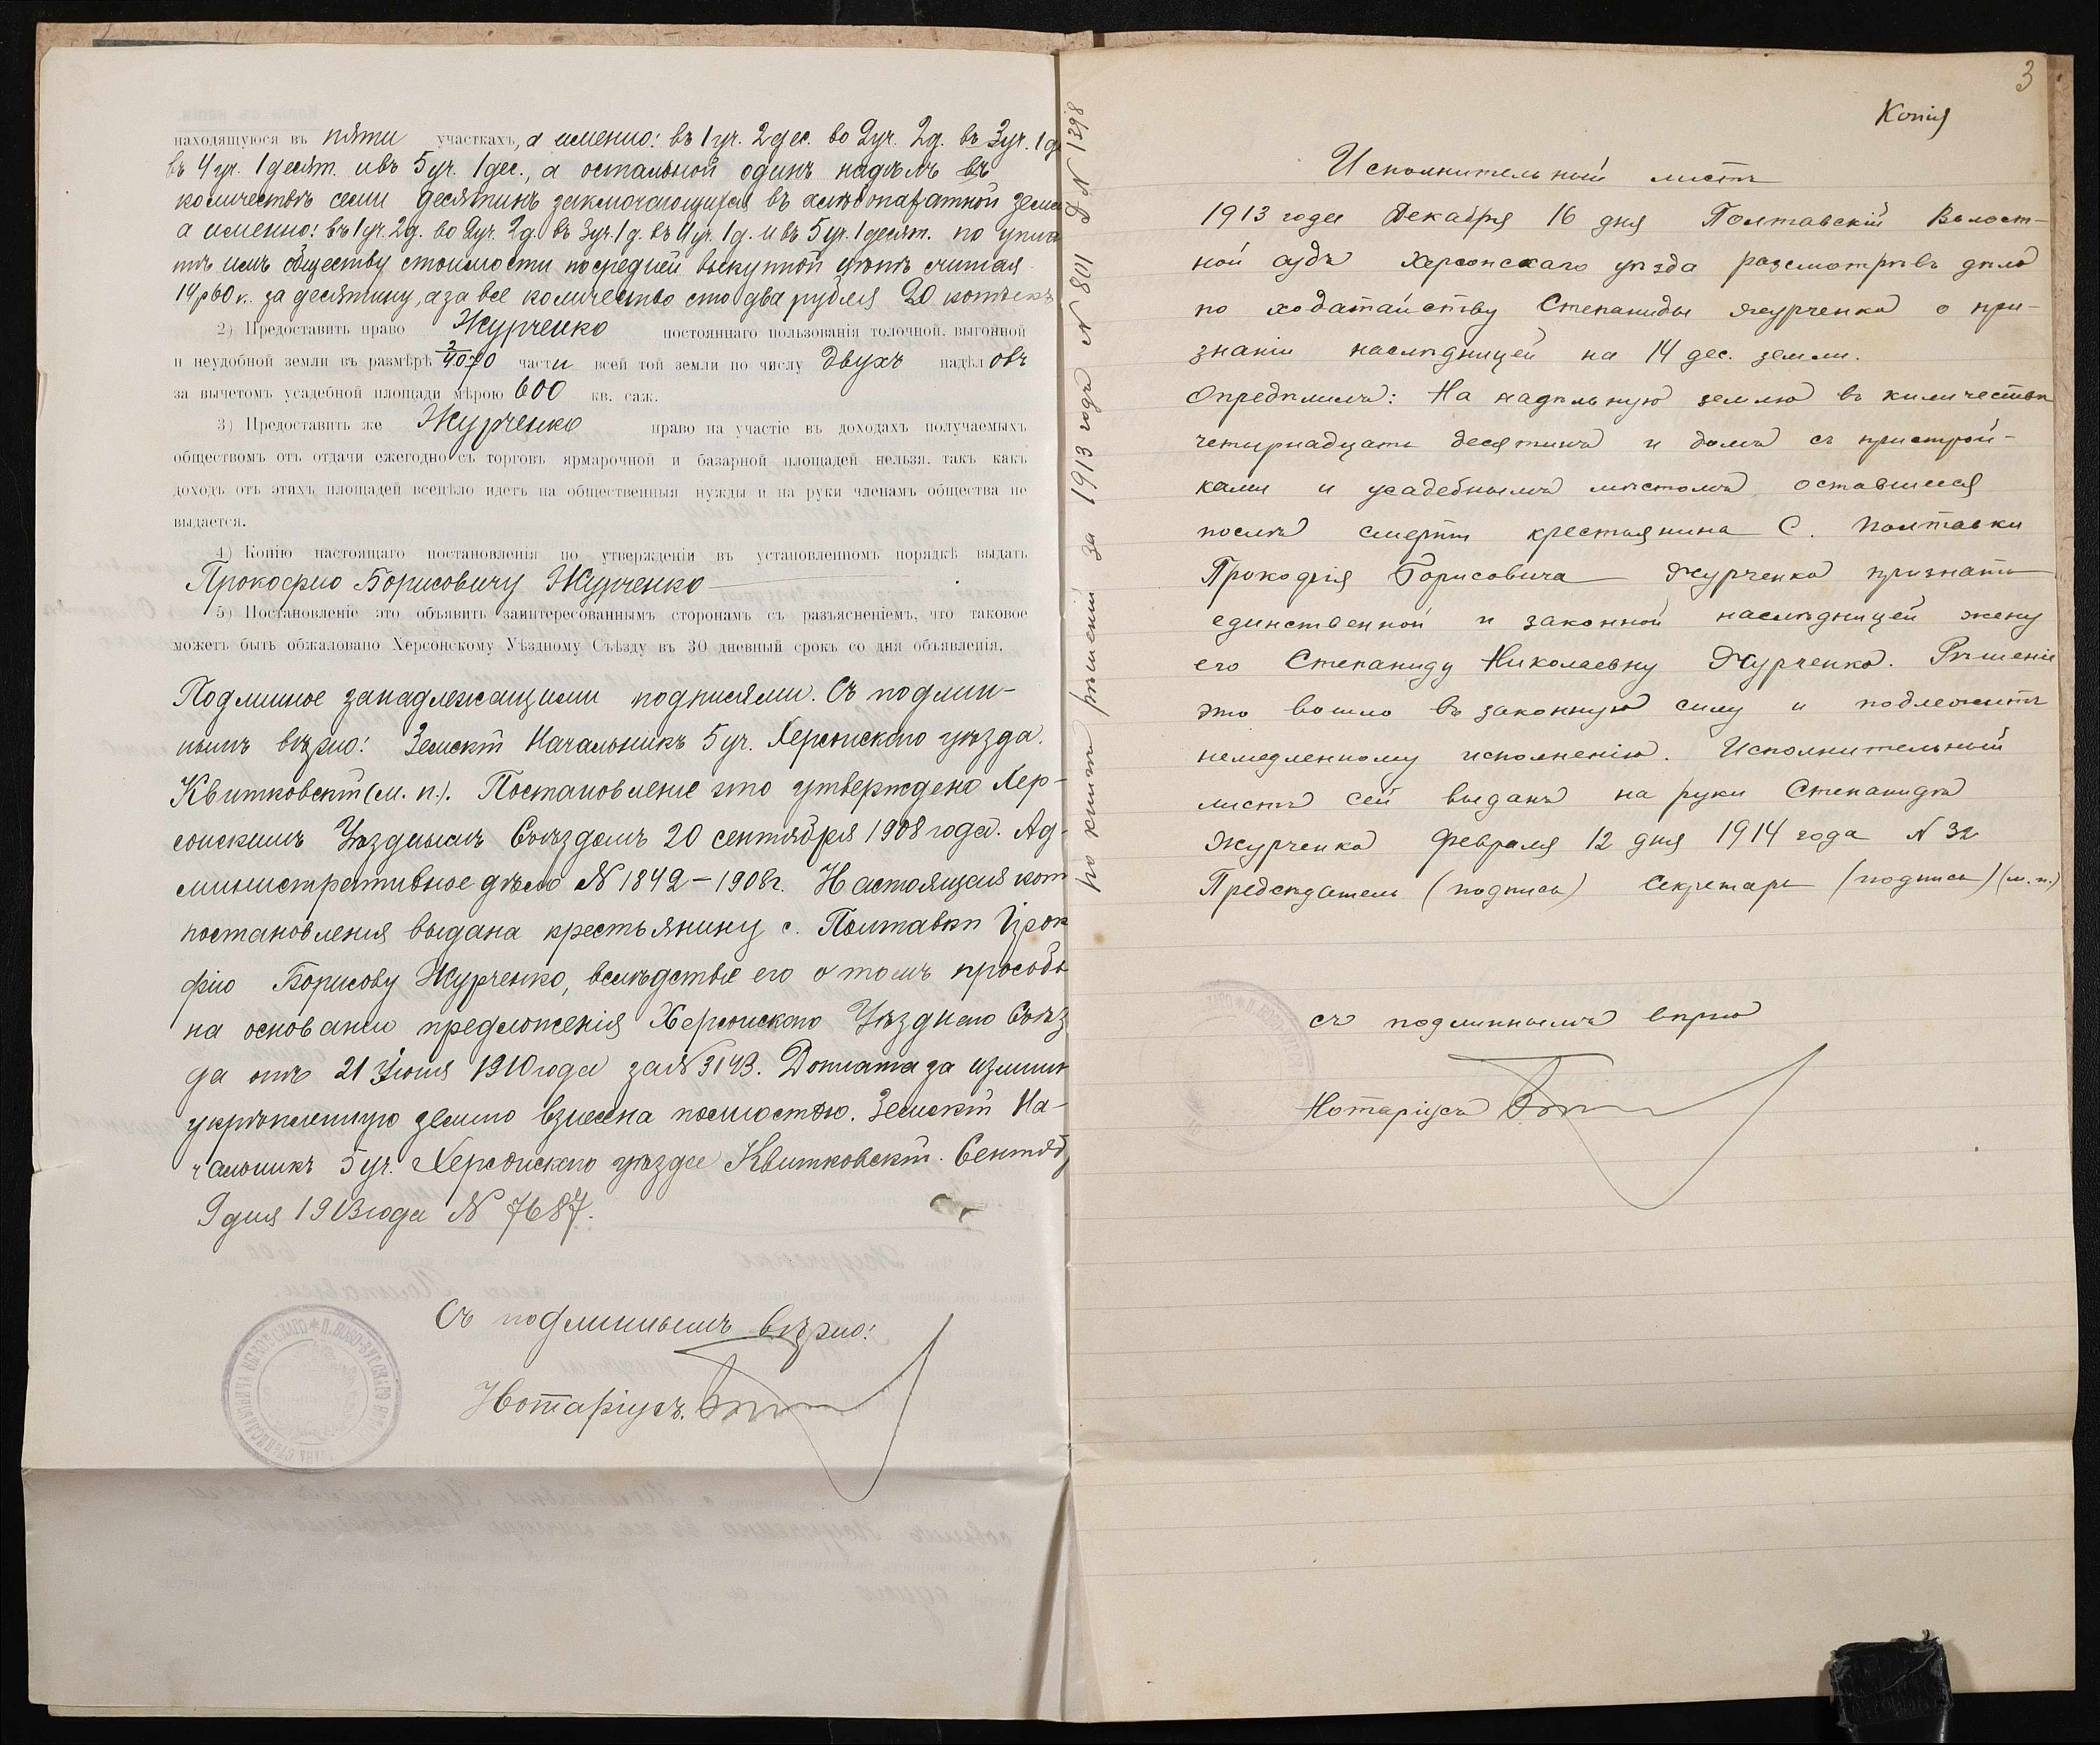 находящуюся въ пяти участкахъ, а именно: въ 1 уч. 2 дес. во 2 уч. 2 д. въ 3 уч. 1 д.
въ 4 уч. 1 десят. и въ 5 уч. 1 дес., а остальной одинъ надѣлъ въ
количествѣ семи десятинъ заключающихся въ хлѣбопахатной земли
а именно: въ 1 уч. 2 д. во 2 уч. 2 д. въ 3 уч. 1 д. въ 4 уч. 1 д. и въ 5 уч. 1 десят. по упла
тѣ имъ обществу стоимости по средней выкупной цѣнѣ считая
14 р 60 к. за десятину, а за все количество сто два рубля 20 копѣекъ
2) Предоставить право Журченко постояннаго пользованія толочной, выгонной
и неудобной земли въ размѣрѣ 2/4070 части всей той земли по числу двухъ надѣловъ
за вычетомъ усадебной площади мѣрою 600 кв. саж.
3) Предоставить же Журченко право на участіе въ доходахъ получаемыхъ
обществомъ отъ отдачи ежегодно съ торговъ ярмарочной и базарной площадей нельзя, такъ какъ
доходъ отъ этихъ площадей всецѣло идетъ на общественныя нужды и на руки членамъ общества не
выдается.
4) Копію настоящаго постановленія по утвержденіи въ установленномъ порядкѣ выдать
Прокофію Борисовичу Журченко
5) Постановленіе это объявить заинтересованнымъ сторонамъ съ разъясненіемъ, что таковое
можетъ быть обжаловано Херсонскому Уѣздному Съѣзду въ 30 дневный срокъ со дня объявленія.
Подлинное за надлежащими подписями. Съ подлин-
нымъ вѣрно: Земскій Начальникъ 5 уч. Херсонскаго уѣзда.
Квитковскій (м. п.). Постановленіе это утверждено Хер-
сонскимъ Уѣзднымъ Съѣздомъ 20 сентября 1908 года. Ад-
министративное дѣло № 1842 – 1908 г. Настоящая коп
постановленія выдана крестьянину с. Полтавки Прок
фію Борисову Журченко, вслѣдствіе его о томъ просьбы
на основаніи предложенія Херсонскаго Уѣзднаго Съѣз
да отъ 21 Іюня 1910 года за № 3143. Доплата за излишн
укрѣпленную землю взнесена полностью. Земскій На-
чальникъ 5 уч. Херсонскаго уѣзда Квитковскій. Сентяб
9 дня 1913 года № 7687.
Съ подлиннымъ вѣрно:
Нотаріусъ.
по книгѣ рѣшеній за 1913 годъ № 801 Д. № 1398
3
Копія
Исполнительный листъ
1913 года Декабря 16 дня Полтавскій Волост-
ной судъ Херсонскаго уѣзда разсмотрѣвъ дѣло
по ходатайству Степаниды Журченко о при-
знаніи наслѣдницей на 14 дес. земли.
Опредѣлилъ: На надѣльную землю въ количествѣ
четырнадцать десятинъ и домъ съ пристрой-
ками и усадебнымъ мѣстомъ, оставшееся
послѣ смерти крестьянина С. Полтавки
Прокофія Борисовича Журченко признать
единственной и законной наслѣдницей жену
его Степаниду Николаевну Журченко. Рѣшеніе
это вошло въ законную силу и подлежитъ
немедленному исполненію. Исполнительный
листъ сей выданъ на руки Степанидѣ
Журченко Февраля 12 дня 1914 года № 32
Предсѣдатель (подпись) Секретарь (подпись) (м. п.)
съ подлиннымъ вѣрно
Нотаріусъ